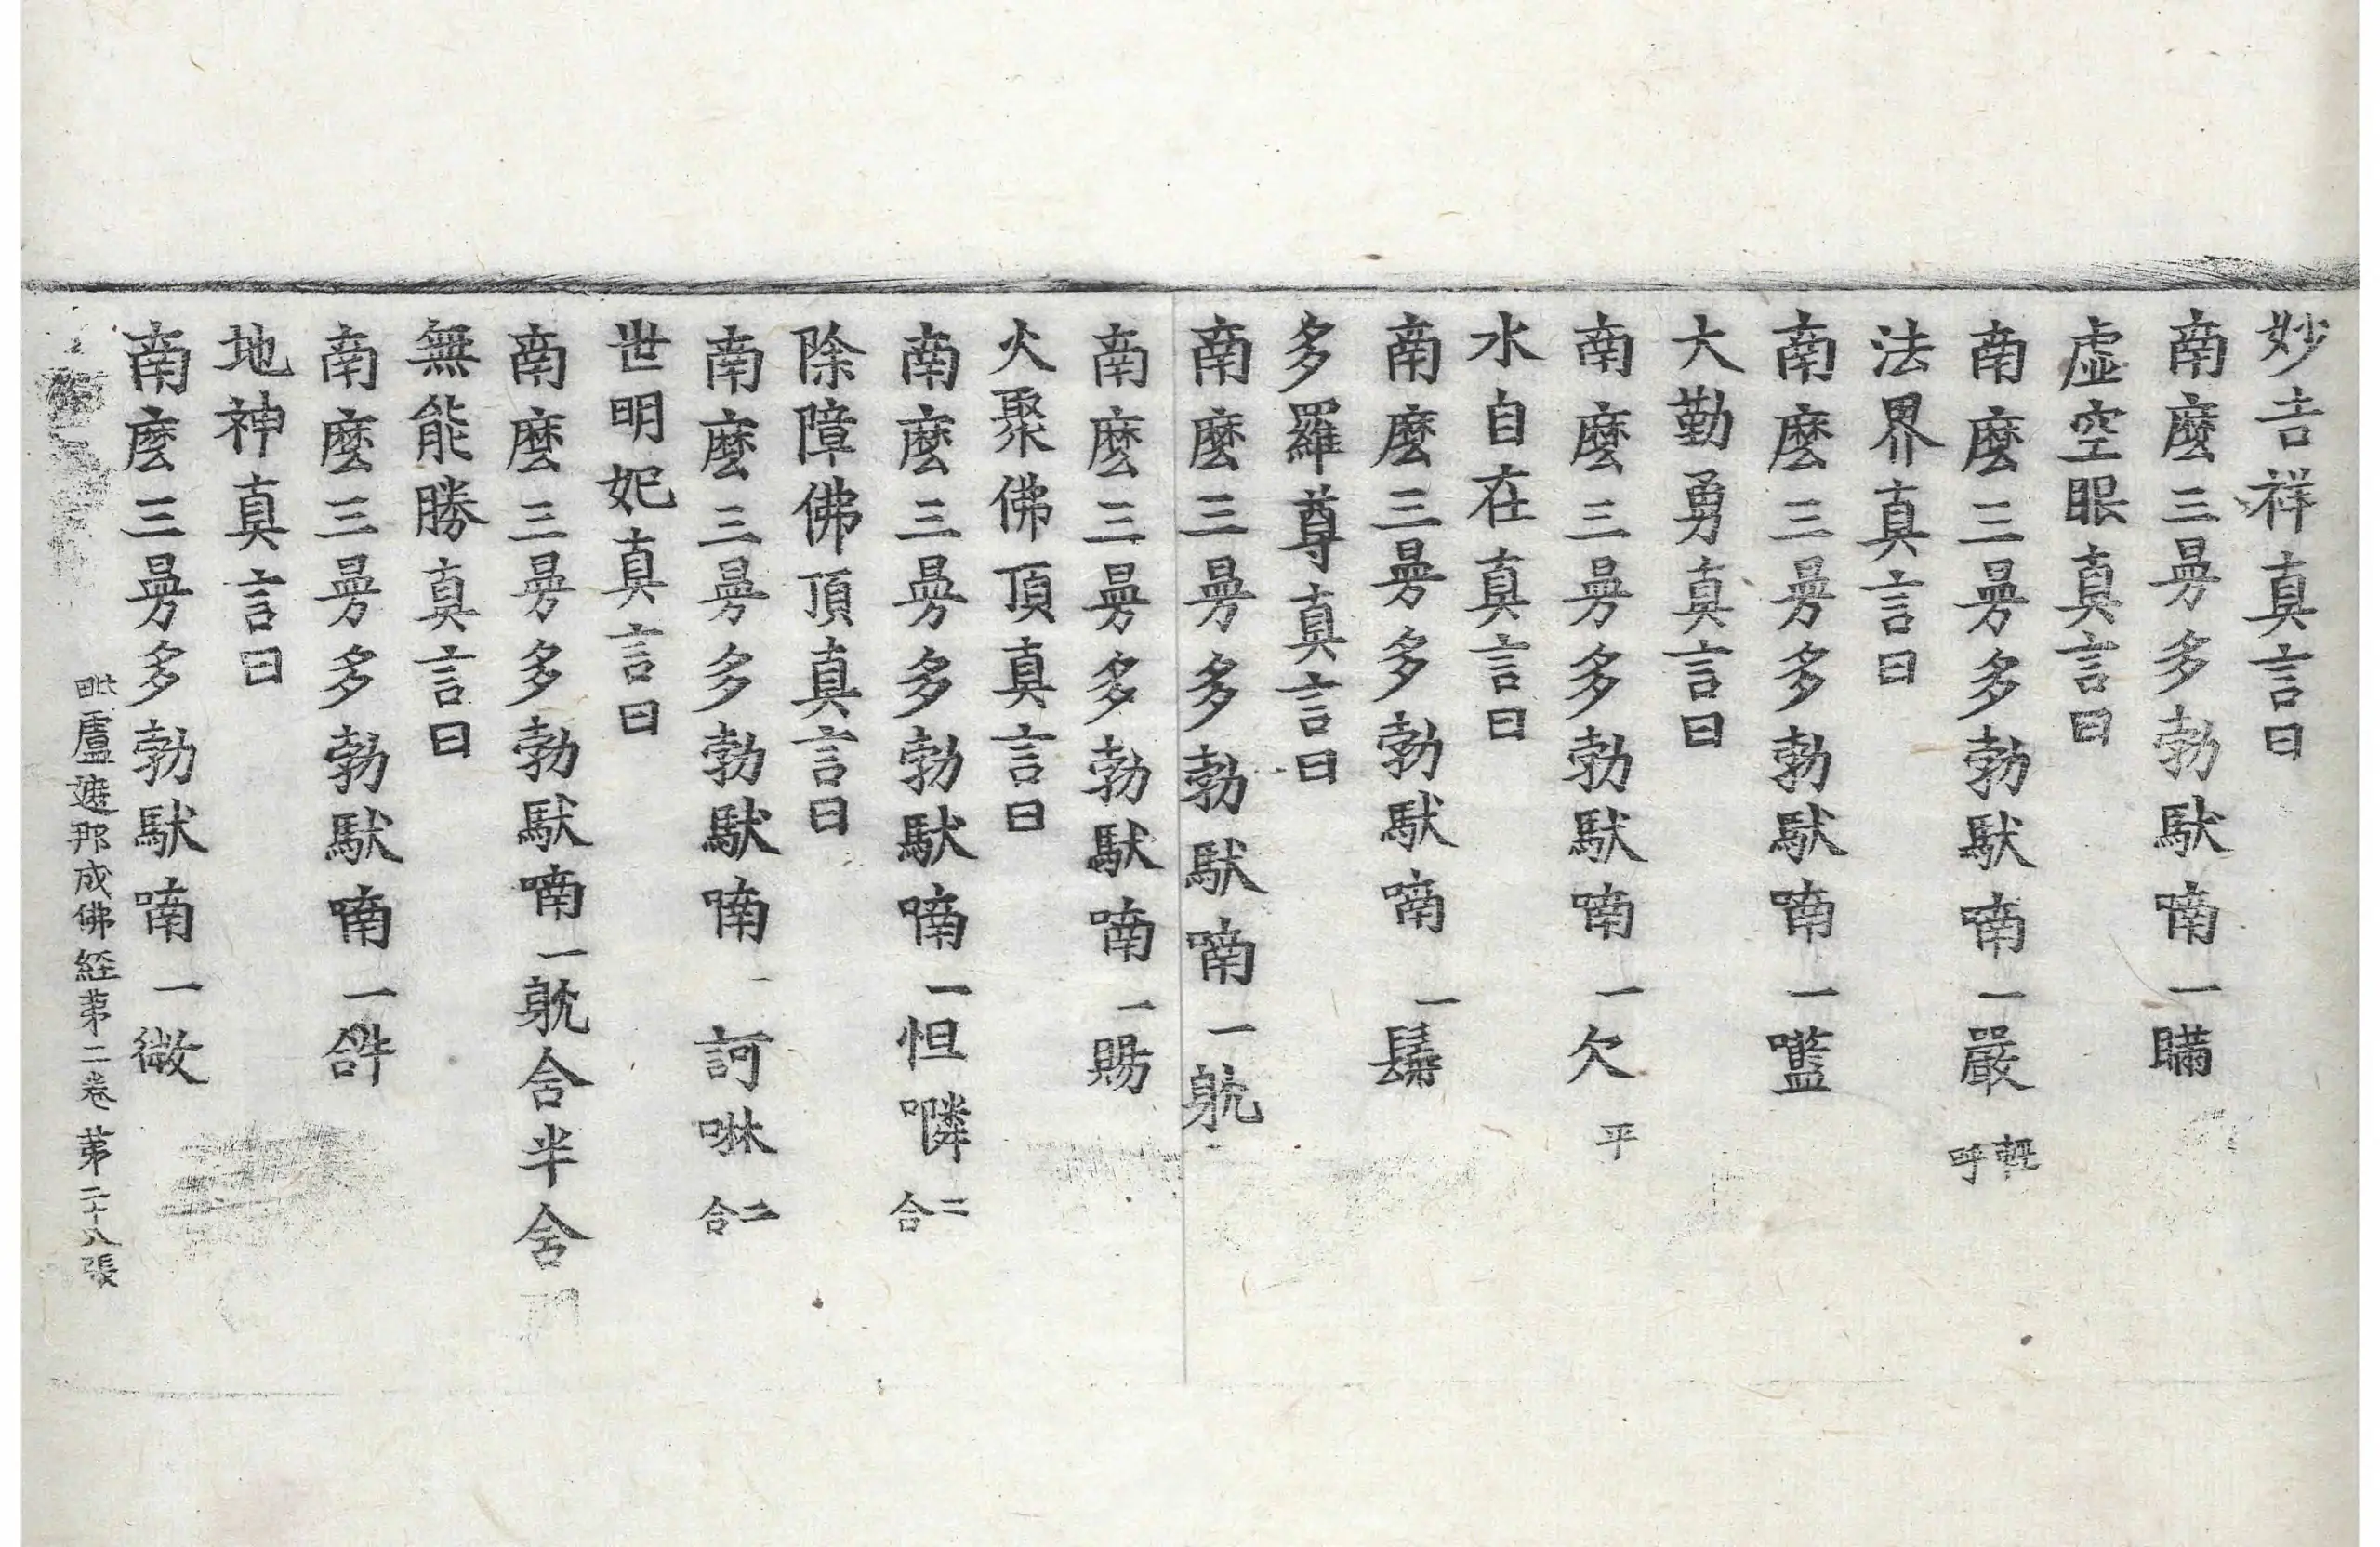 妙吉祥真言曰
南麼三曼多勃馱喃一瞞
虛空眼真言曰
南麼三曼多勃馱喃一嚴輕呼
法界真言曰
南麼三曼多勃馱喃一㘕
大勤勇真言曰
南麼三曼多勃馱喃一欠平
水自在真言曰
南麼三曼多勃馱喃一髯
多羅尊真言曰
南麼三曼多勃馱喃一躭
南麼三曼多勃馱喃一賜
火聚佛頂真言曰
南麼三曼多勃馱喃一怛嶙二合
除障佛頂真言曰
南麼三曼多勃馱喃一訶啉二合
世明妃真言曰
南麼三曼多勃馱喃一躭含半含
無能勝真言曰
南麼三曼多勃馱喃一
地神真言曰
南麼三曼多勃馱喃一微
毗盧遮那成佛經第二卷 第二十八張